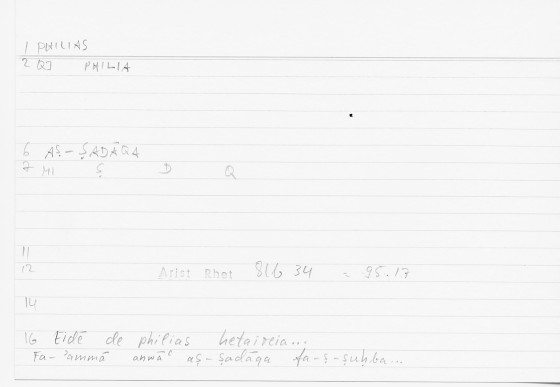 1 PHILIAS
2 QI PHILIA
6 AṢ-ṢADĀQA
7 MI Ṣ D Q
11
12 Arist Rhet 81b 34 = 95.17
14
16 Eidē de philias hetaireia...
Fa-ʾammā anwāʿ aṣ-ṣadāqa fa-ṣ-ṣuḥba...